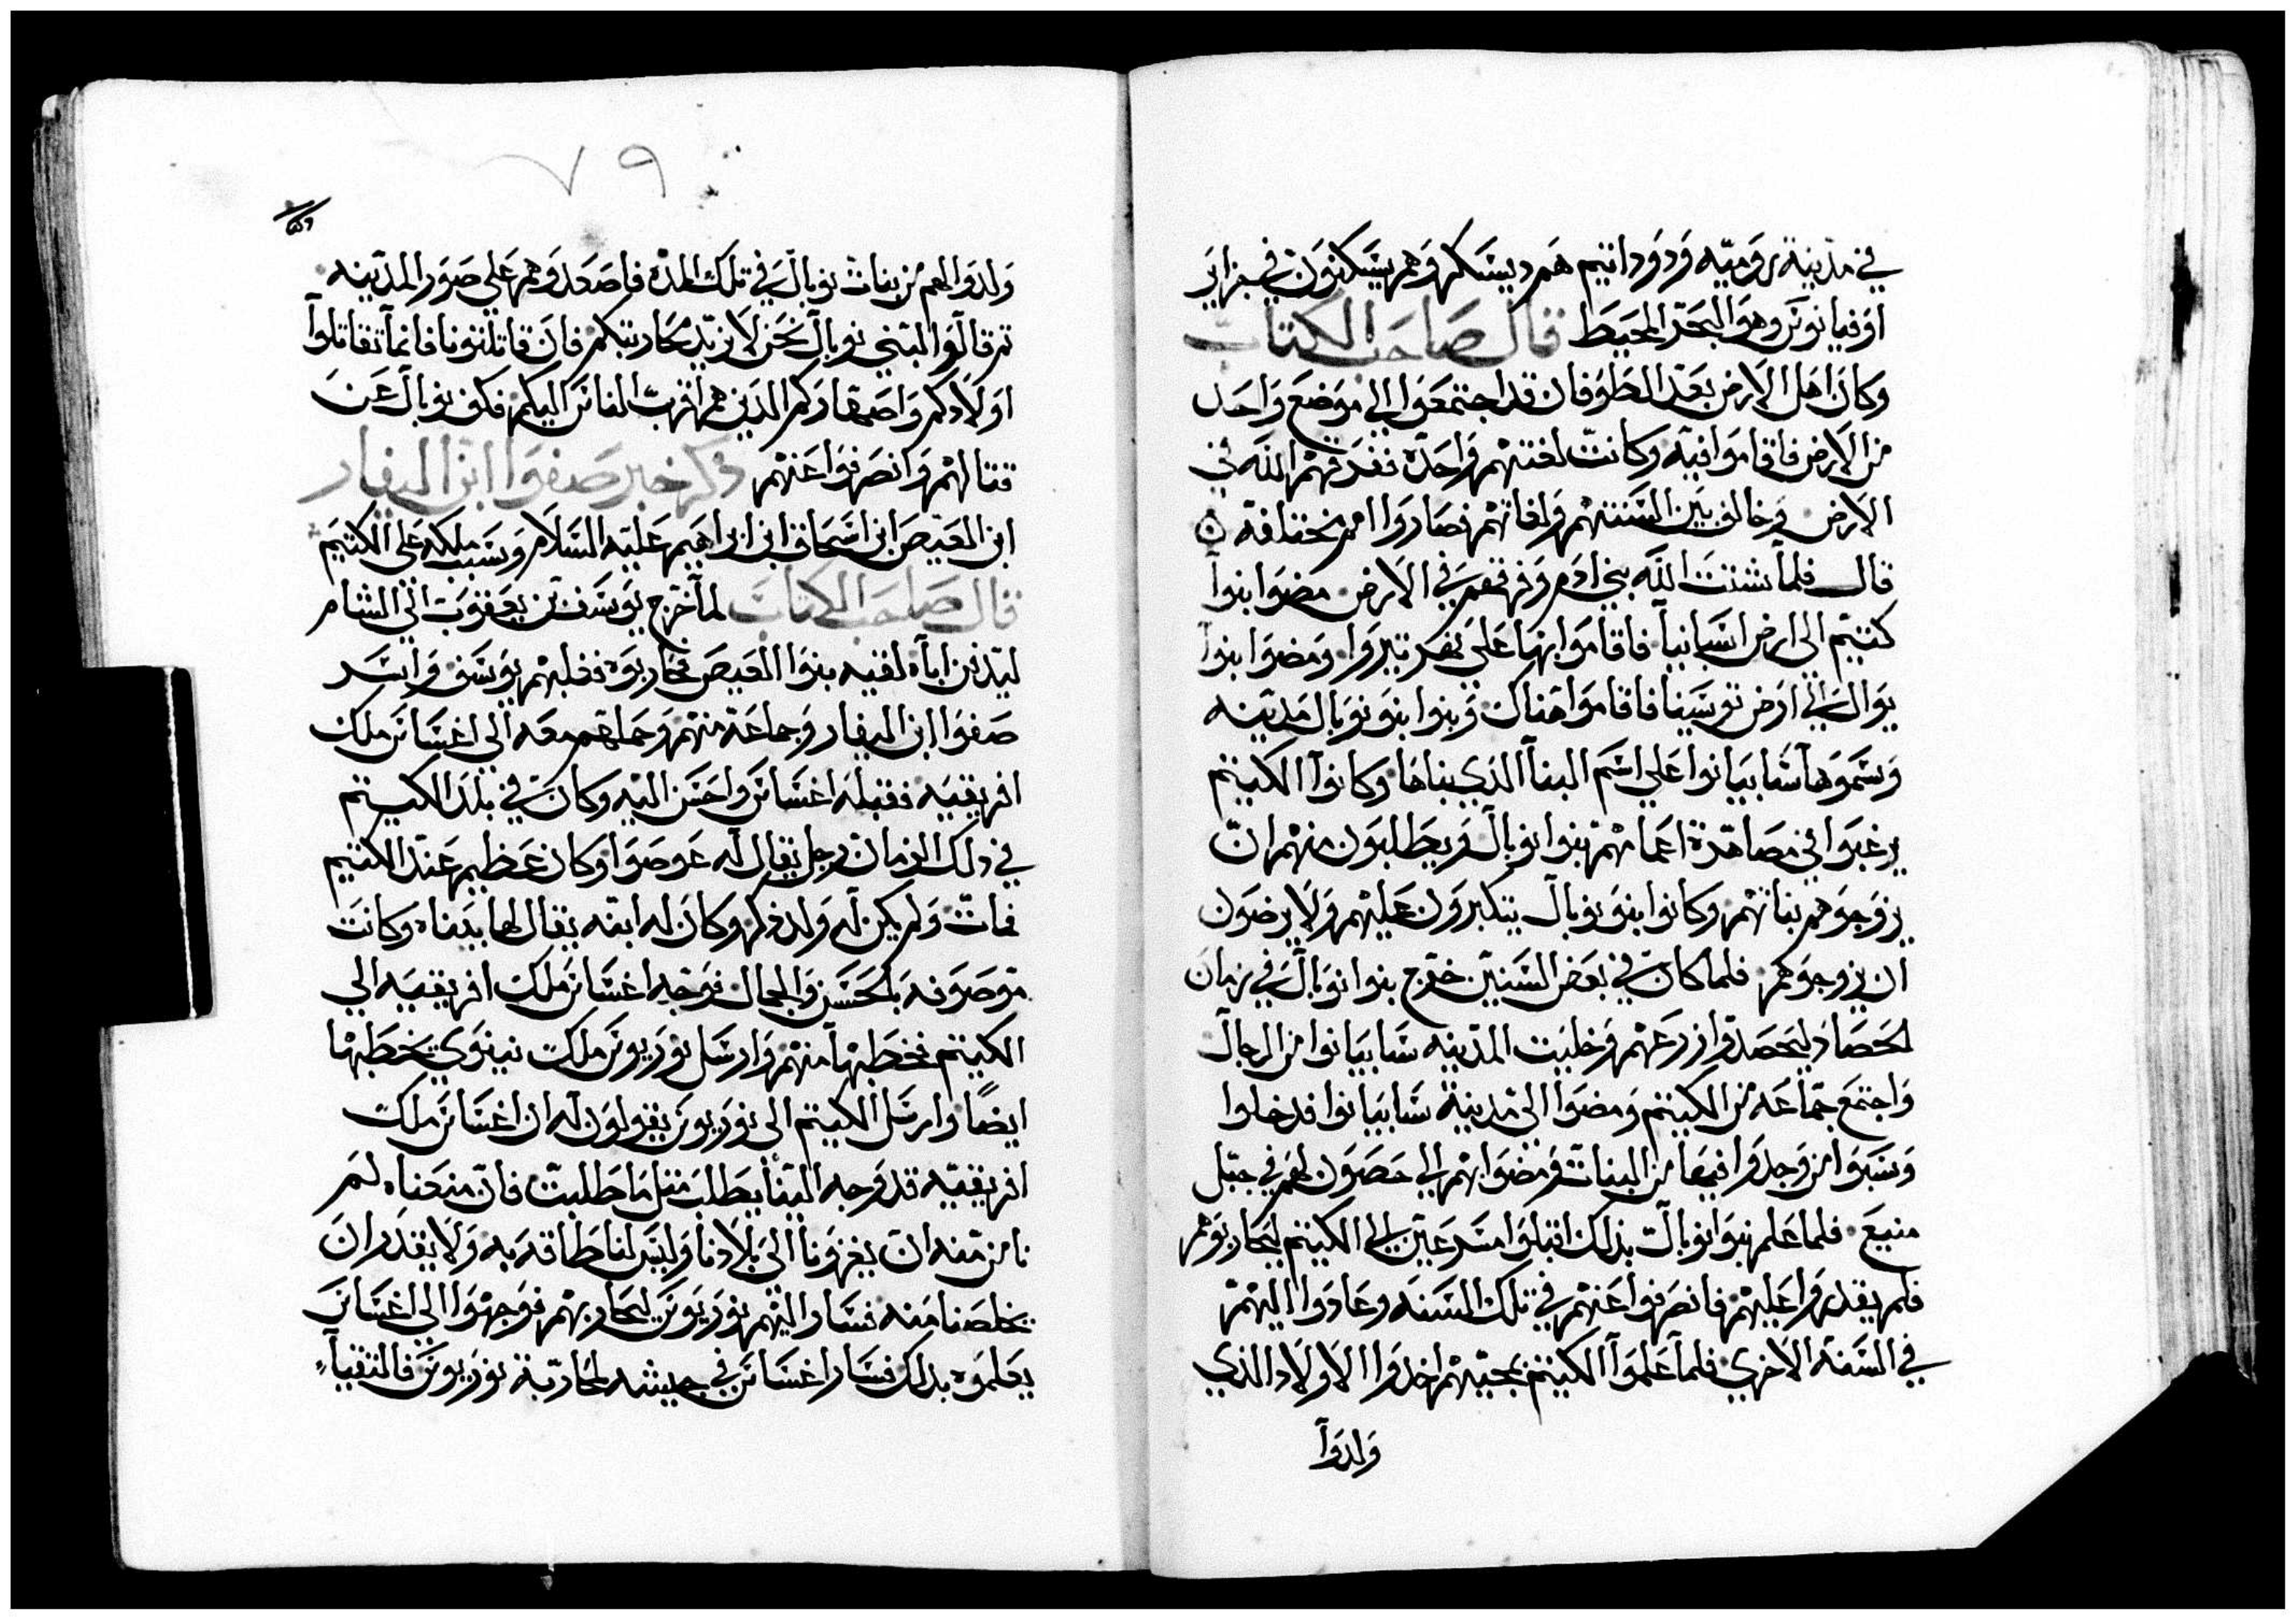 في مدينة روميه ودودانيم هم ديسكر وهم يسكنون في جزاير
اوفيانوس وهو البحر المحيط قال صاحب الكتاب
وكان اهل الارض بعد الطوفان قد اجتمعوا الي موضع واحد
من الارض فاقاموا فيه وكانت لغتهم واحدة ففرقهم الله في
الارض وخالف بين السنتهم ولغاتهم فصاروا امم مختلفة
قال فلما شتت الله بني ادم وفرقهم في الارض مضوا بنوا
كتيم الي ارض اسبانيا فاقاموا بها على نهر تيبروا ومضوا بنوا
نوبال الي ارض توسينا فاقاموا هناك وبنوا بنو نوبال مدينه
وسموها شابيانوا علي اسم البنا الذي بناها وكانوا الكيتم
يرغبوا في مصاهرة اعمامهم بنوا نوبال ويطلبون منهم ان
يزوجوهم بناتهم وكانوا بنو نوبال يتكبرون عليهم ولا يرضون
ان يزوجوهم فلما كان في بعض السنين خرج بنوا نوبال في زمان
الحصاد ليحصدوا زرعهم وخليت المدينه شابيانوا من الرجال
واجتمع جماعه من الكيتم ومضوا الي مدينة شابيانوا فدخلوا
وسبوا من وجدوا فيها من البنات ومضوا بهم الي حصون لهم في جبل
منيع فلما علم بنوا نوبال بذلك اقبلوا مسرعين الي الكيتم ليحاربوهم
فلم يقدروا عليهم فانصرفوا عنهم في تلك السنه وعادوا اليهم
في السنة الاخري فلما علموا الكيتم بمجيهم اخذوا الاولاد الذي
ولدوا
٧٩
ولدوا لهم من بنات نوبال في تلك المدة فاصعدوهم علي صور المدينه
ثم قالوا لبني نوبال نحن لا نريد محاربتكم فان قاتلتونا فانما تقاتلوا
اولادكم واصهاركم الذين هم اقرب الناس اليكم فكف نوبال عن
قتالهم وانصرفوا عنهم ذكر خبر صفوا ابن اليفار
ابن العيص ابن اسحاق ابن ابراهيم عليه السلام وسبب ملكه علي الكيتم
قال صاحب الكتاب لما خرج يوسف بن يعقوب الي الشام
ليدفن اباه لقيه بنوا العيص فحاربوه فغلبهم يوسف واسر
صفوا ابن اليفار وجماعة منهم وحملهم معه الي اغنساس ملك
افريقيه فقبله اغنساس واحسن اليه وكان في بلد الكيتم
في ذلك الزمان رجل يقال له عوصوا وكان عظيم عند الكيتم
فمات ولم يكن له ولد ذكر وكان له ابنه يقال لها يدناه وكانت
موصوفه بالحسن والجمال فوجه اغنساس ملك افريقيه الي
الكيتم فخطبها منهم وارسل نوريوس ملك نينوي يخطبها
ايضا وارسل الكيتم الى نوريوس يقولون له ان اغنساس ملك
افريقيه قد وجه الينا يطلب مثل ما طلبت فان منعناه لم
نامن منه ان يغزونا الي بلادنا وليس لنا طاقه به ولا يقدر ان
يخلصنا منه فسار اليهم نوريوس ليحاربهم فوجهوا الي اغنساس
يعلموه بذلك فسار اغنساس في جيشه لمحاربة نوريوس فالتقيا